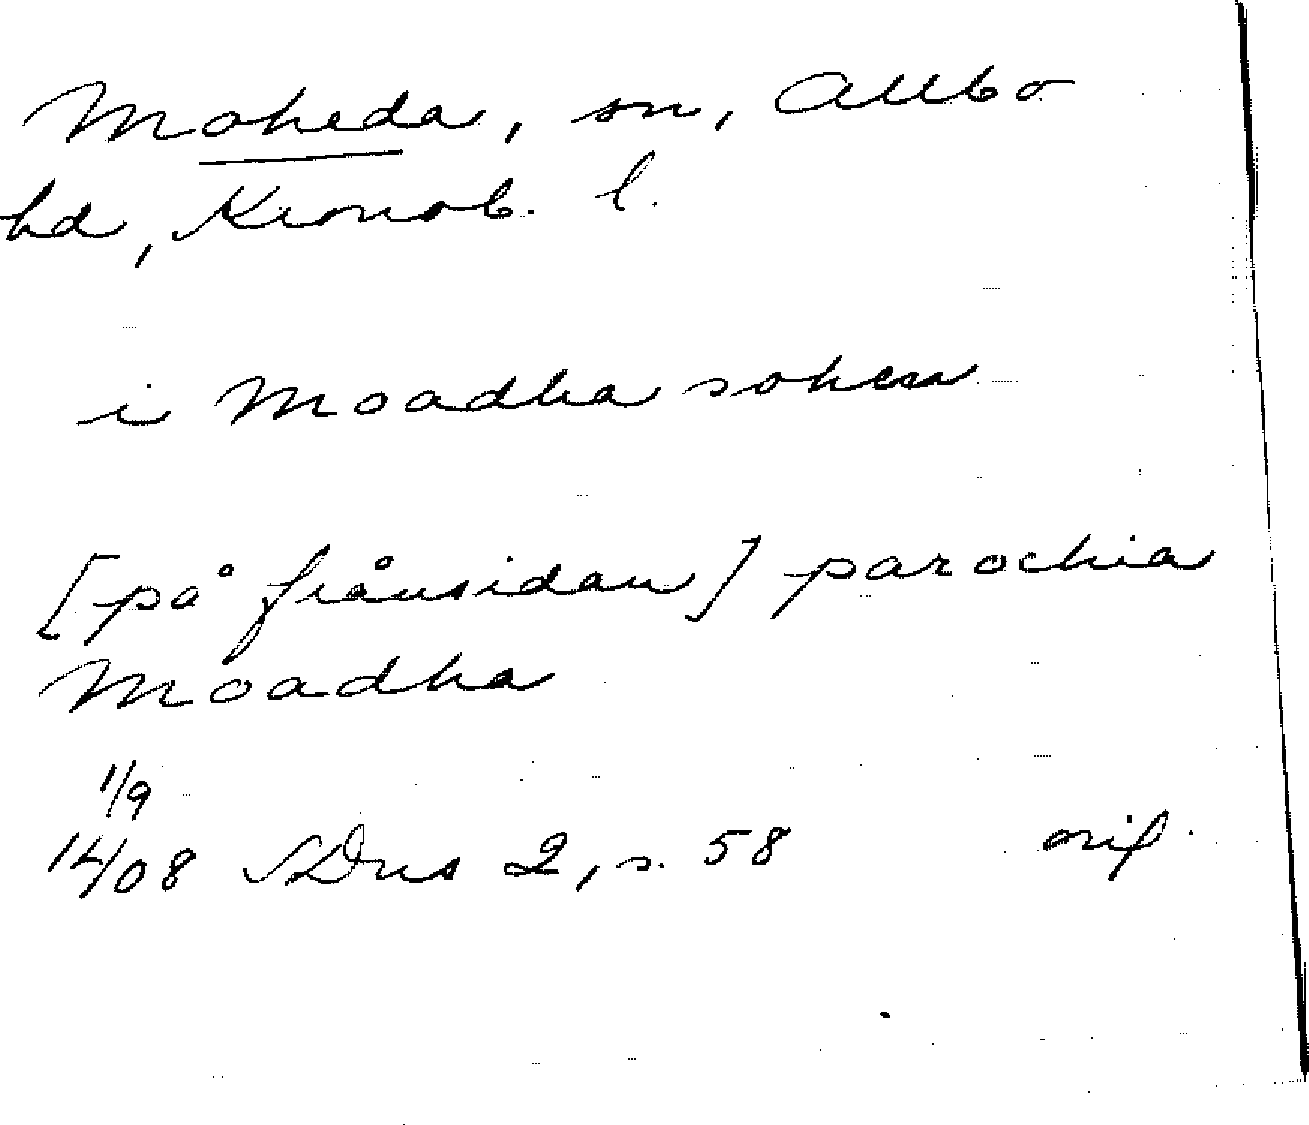 Moheda, sn, Allbo
hd, Kronob. l.
i Moadha soken
[på frånsidan] parochia
Moadha
1/9
1408 SDns 2, s. 58 orig.